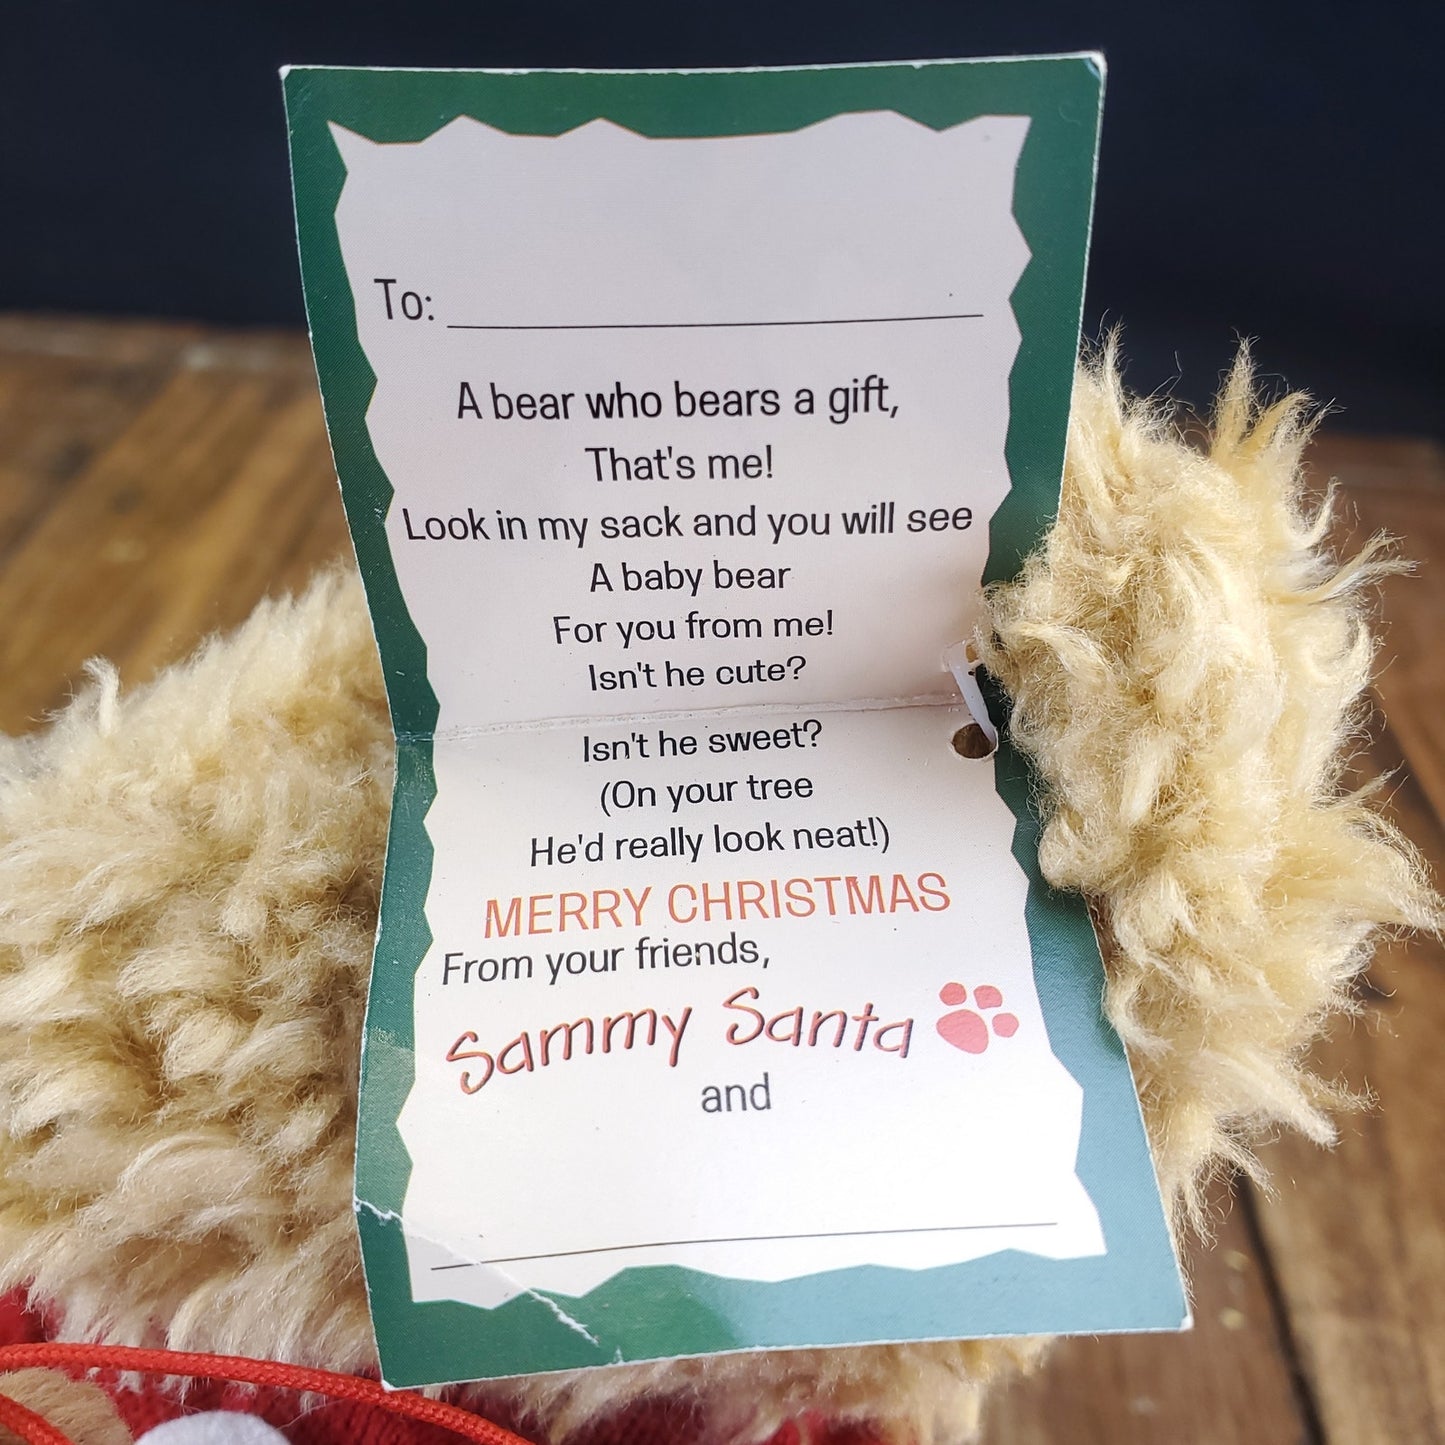 To:
A bear who bears a gift,
That's me!
Look in my sack and you will see
A baby bear
For you from me!
Isn't he cute?
Isn't he sweet?
(On your tree
He'd really look neat!)
MERRY CHRISTMAS
From your friends,
Sammy Santa
and